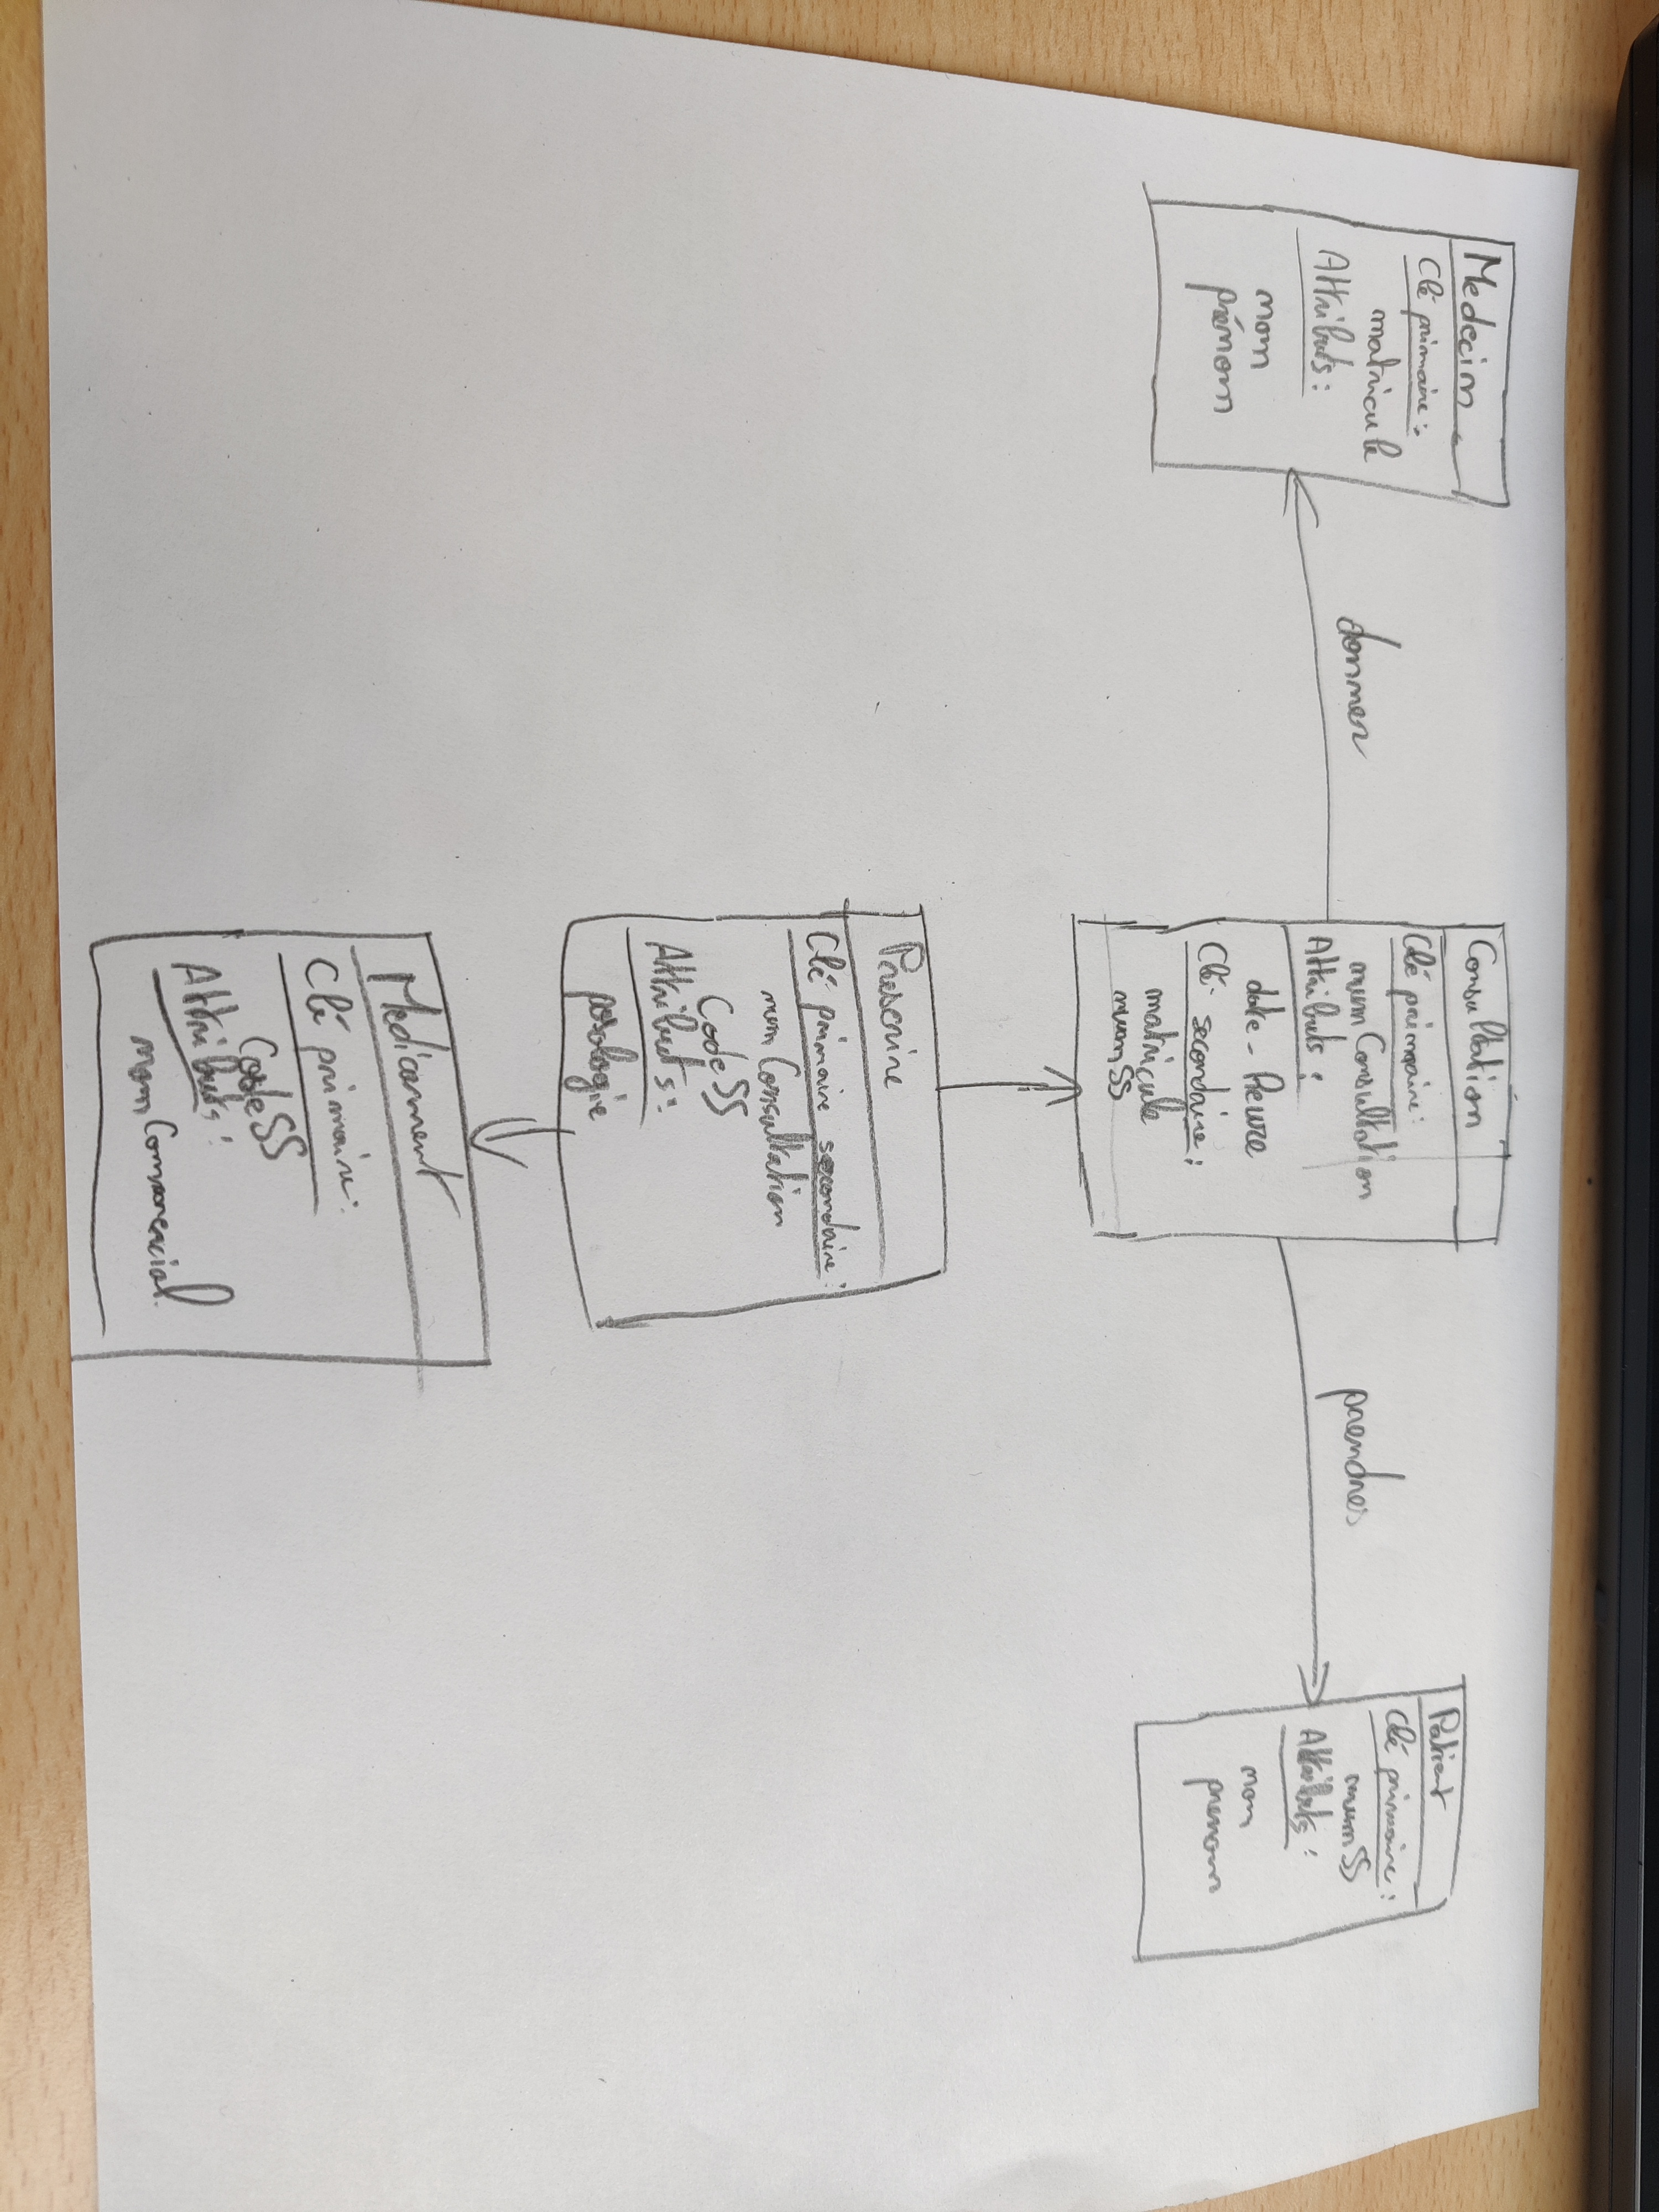 Medecin
Clé primaire :
matricule
Attributs :
nom
prénom
donner
Consultation
Clé primaire :
numConsultation
Attributs :
date-heure
Clé secondaire :
matricule
numSS
prendres
Patient
Clé primaire :
numSS
Attributs :
nom
prenom
Prescrire
Clé primaire secondaire :
numConsultation
CodeSS
Attributs :
posologie
Medicament
Clé primaire :
CodeSS
Attributs :
nomCommercial.